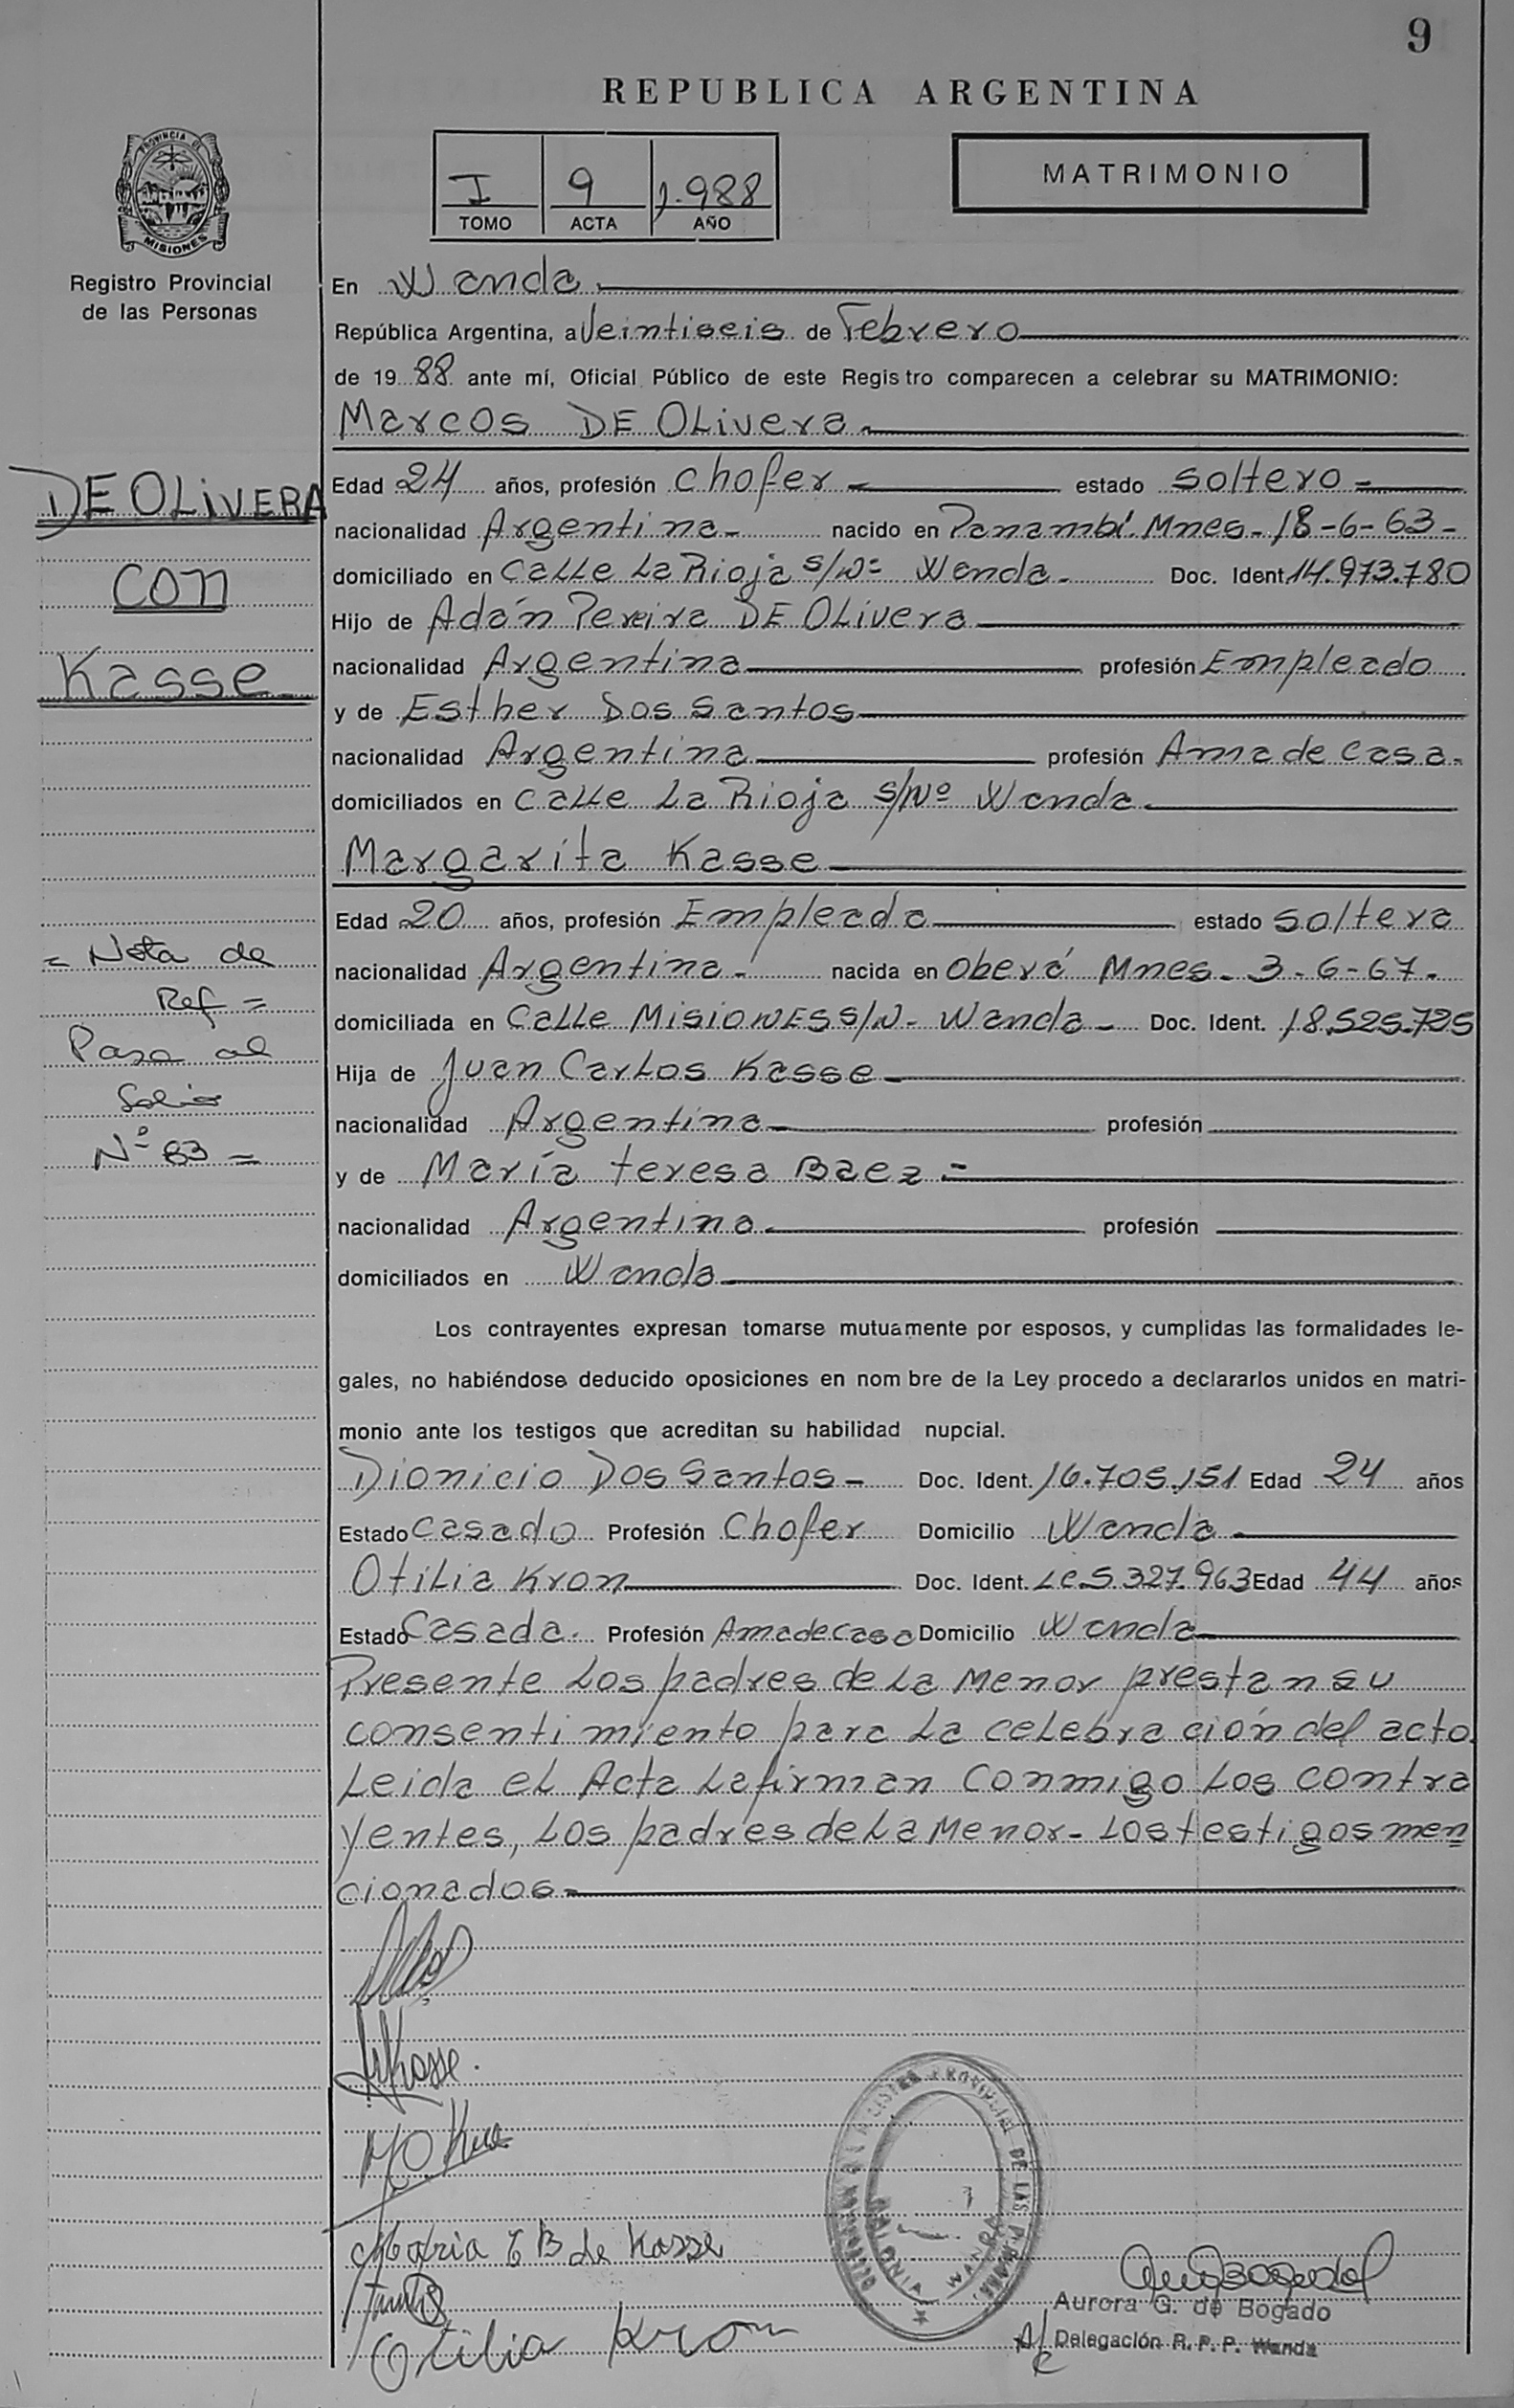 9
REPUBLICA ARGENTINA
PROVINCIA DE
MISIONES
Registro Provincial
de las Personas
I 9 1.988
TOMO ACTA AÑO
MATRIMONIO
En Wanda
República Argentina, a Veintiseis de Febrero
de 19 88 ante mí, Oficial Público de este Registro comparecen a celebrar su MATRIMONIO:
Marcos DE OLivera
DE OLIVERA
con
Kasse
Edad 24 años, profesión chofer estado soltero
nacionalidad Argentina nacido en Panambí. Mnes - 18-6-63-
domiciliado en CaLLe La Rioja s/Nº Wanda. Doc. Ident. 14.973.780
Hijo de Adán Pereira DE OLivera
nacionalidad Argentina profesión Empleado
y de Esther Dos Santos
nacionalidad Argentina profesión Ama de casa.
domiciliados en CaLLe La Rioja s/Nº Wanda
Margarita Kasse
Edad 20 años, profesión Empleada estado soltera
nacionalidad Argentina. nacida en Oberá Mnes. 3-6-67.
domiciliada en CaLLe MisioNES S/N- Wanda - Doc. Ident. 18.525.725
Hija de Juan CarLos Kasse
nacionalidad Argentina profesión
y de María teresa Baez =
nacionalidad Argentina profesión
domiciliados en Wanda
= Nota de
Ref =
Pasa al
Folio
Nº 83 =
Los contrayentes expresan tomarse mutuamente por esposos, y cumplidas las formalidades le-
gales, no habiéndose deducido oposiciones en nombre de la Ley procedo a declararlos unidos en matri-
monio ante los testigos que acreditan su habilidad nupcial.
Dionicio Dos Santos - Doc. Ident. 16.705.151 Edad 24 años
Estado casado Profesión Chofer Domicilio Wanda
OtiLia Kron Doc. Ident. Lc.5.327.963 Edad 44 años
Estado Casada. Profesión Ama de casa Domicilio Wanda
Presente Los padres de La Menor prestan su
consentimiento para La ceLebración del acto
Leida eL Acta La firman conmigo Los contra
yentes, Los padres de La Menor- Los testigos men
cionados=
Kasse.
Maria T B de Kasse
Otilia Kron
WANDA
Aurora G. de Bogado
A/c Delegación R. P. P. Wanda